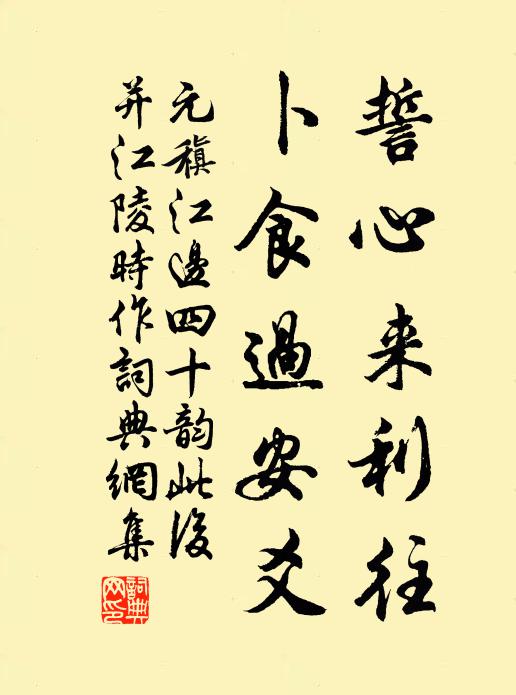 誓心来利往
卜食過安爻
元稹江邊四十韵此後
并江陵時作詞典網集
詞典网印